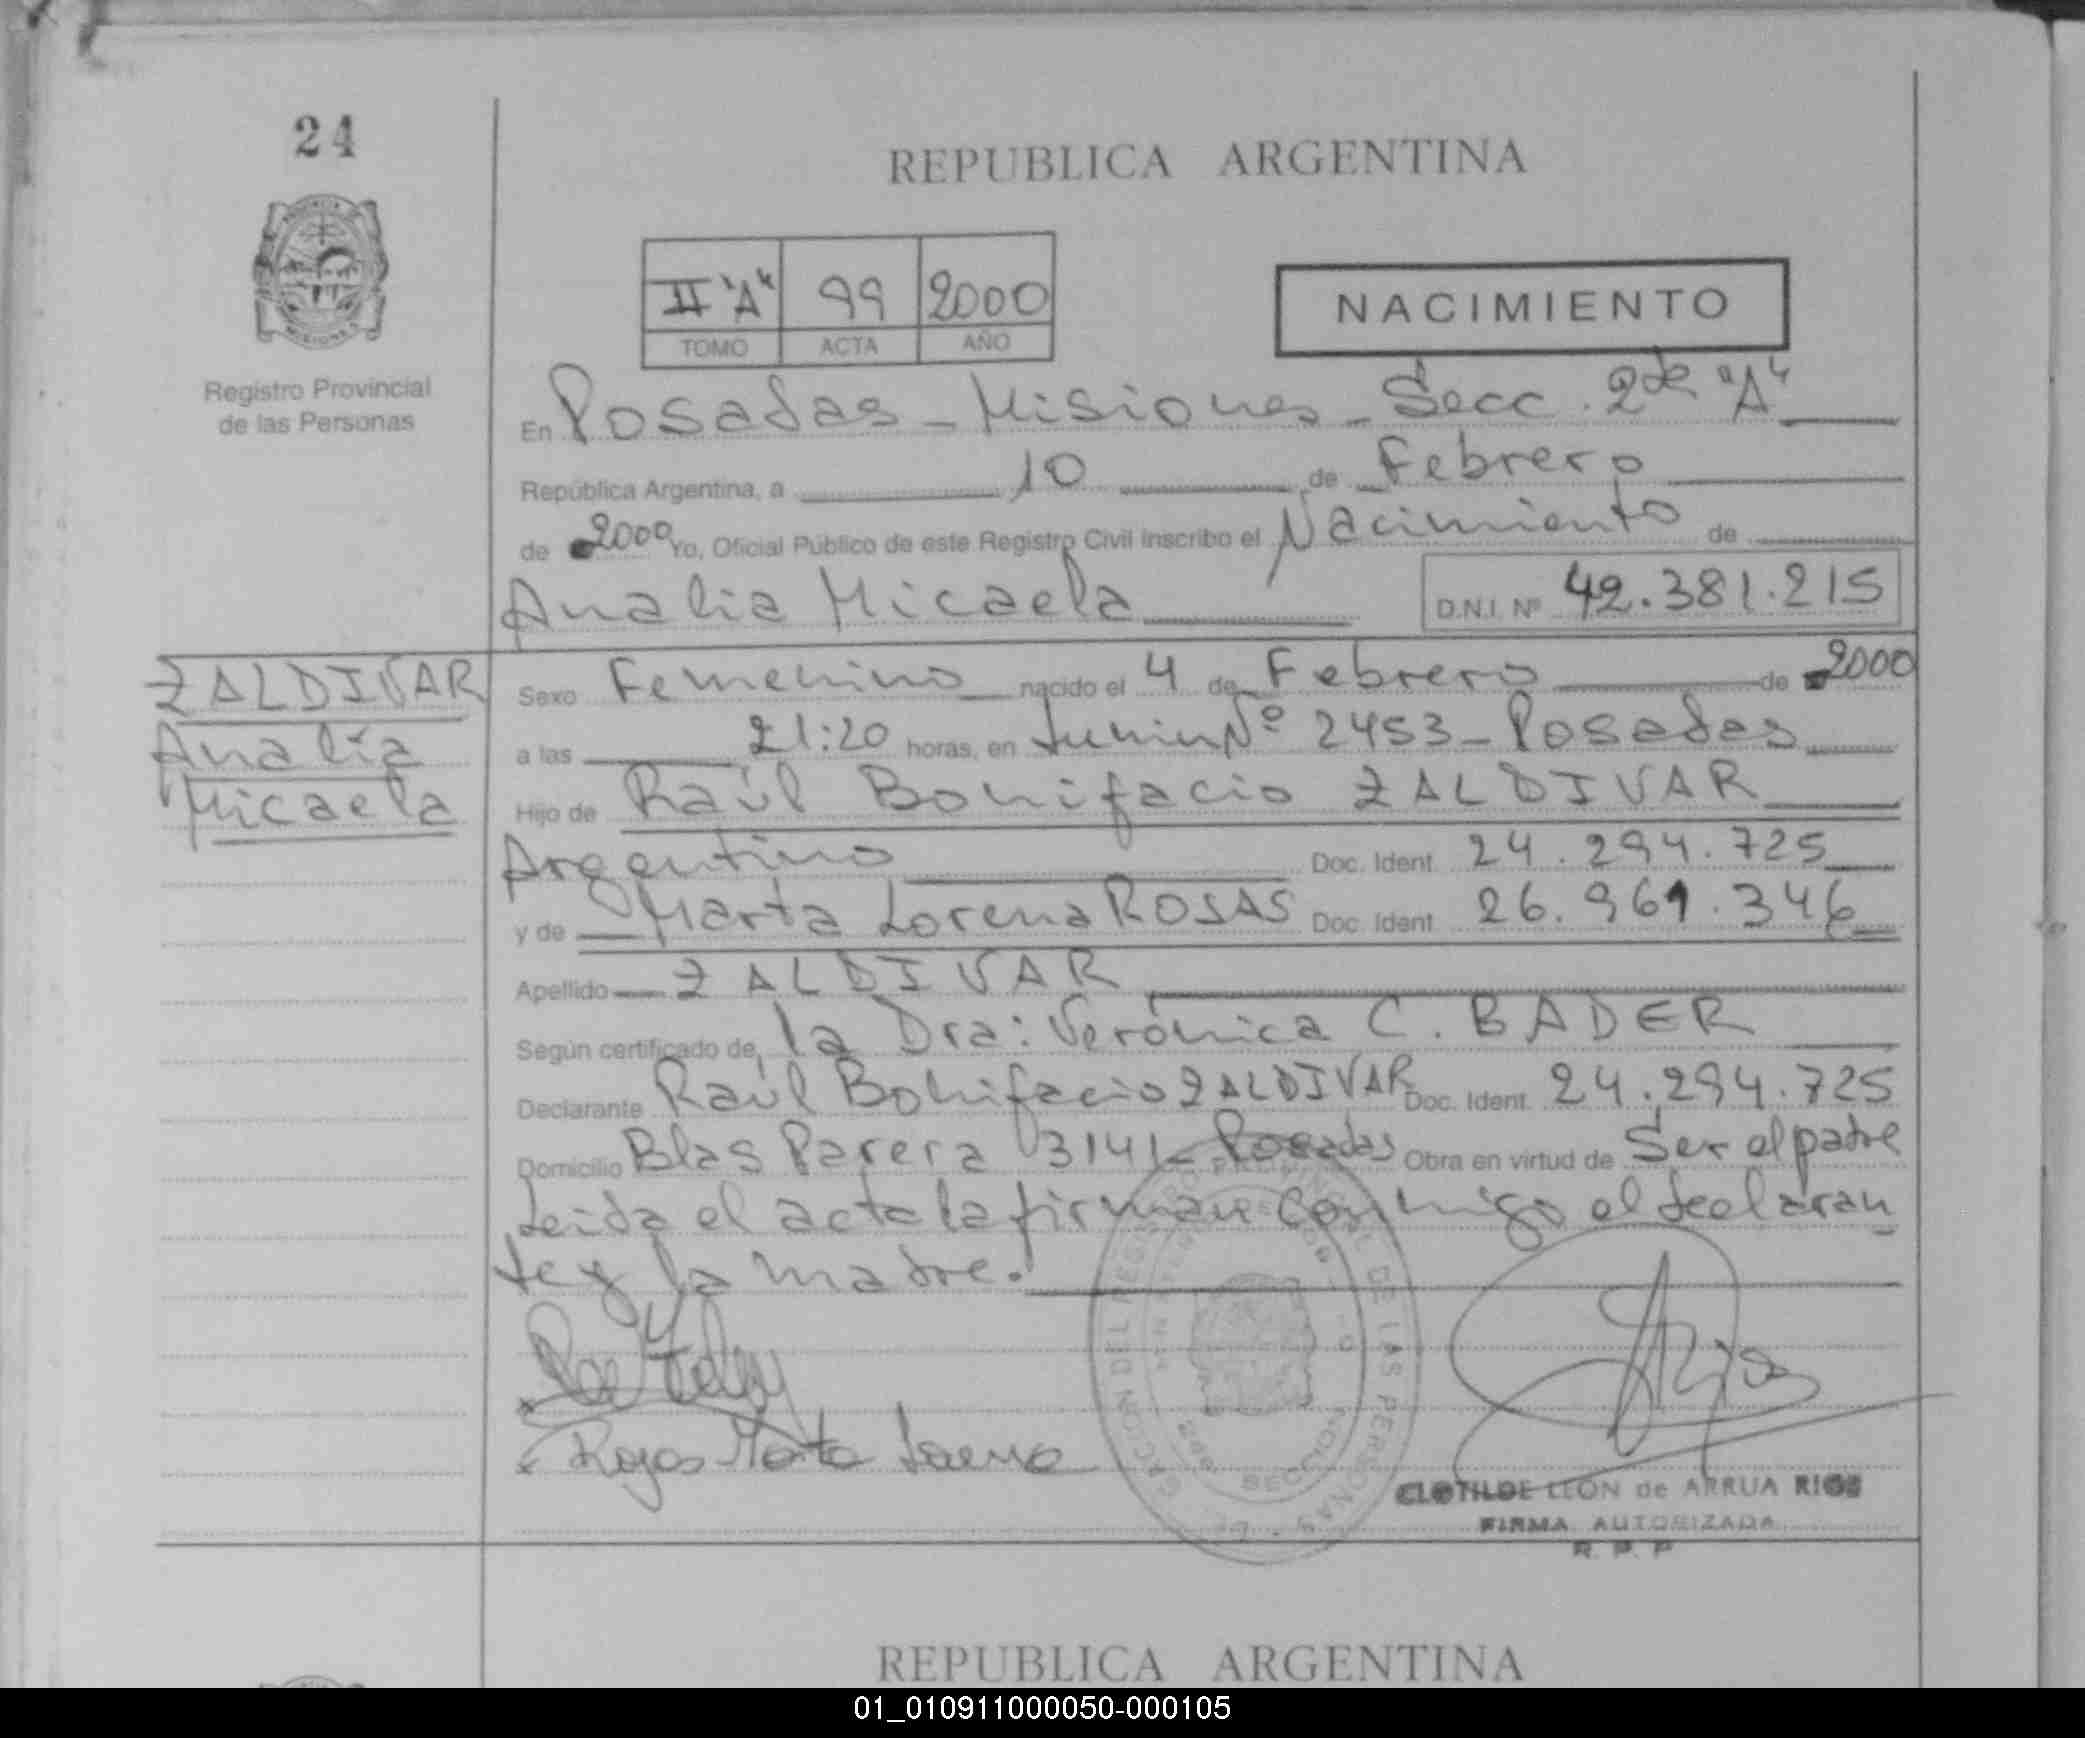 24
REPUBLICA ARGENTINA
II "A" 99 2000
TOMO ACTA AÑO
NACIMIENTO
Registro Provincial
de las Personas
En Posadas - Misiones - Secc. 2da "A"
República Argentina, a 10 de Febrero
de 2000 Yo, Oficial Público de este Registro Civil inscribo el Nacimiento de
Analia Micaela D.N.I. Nº 42.381.215
ZALDIVAR
Analía
Micaela
Sexo Femenino nacido el 4 de Febrero de 2000
a las 21:20 horas, en Junin Nº 2453 - Posadas
Hijo de Raúl Bonifacio ZALDIVAR
Argentino Doc. Ident. 24.294.725
y de Marta Lorena ROJAS Doc. Ident. 26.961.346
Apellido ZALDIVAR
Según certificado de, la Dra: Verónica C. BADER
Declarante Raúl Bonifacio ZALDIVAR Doc. Ident. 24.294.725
Domicilio Blas Parera 3141 - Posadas Obra en virtud de Ser el padre
Leida el acta la firman conmigo el declaran
te y la madre.
Rojas Marta
CLOTILDE LEON de ARRUA RIOS
FIRMA AUTORIZADA
R. P. P
REPUBLICA ARGENTINA
01_010911000050-000105